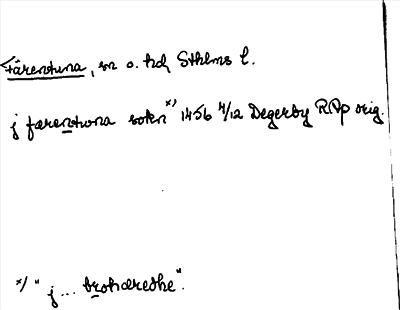 Färentuna, sn o. hd, Sthlms l.
j færentwna sokn x) 1456 4/12 Degerby RAp orig.
x) "j... brohæredhe".